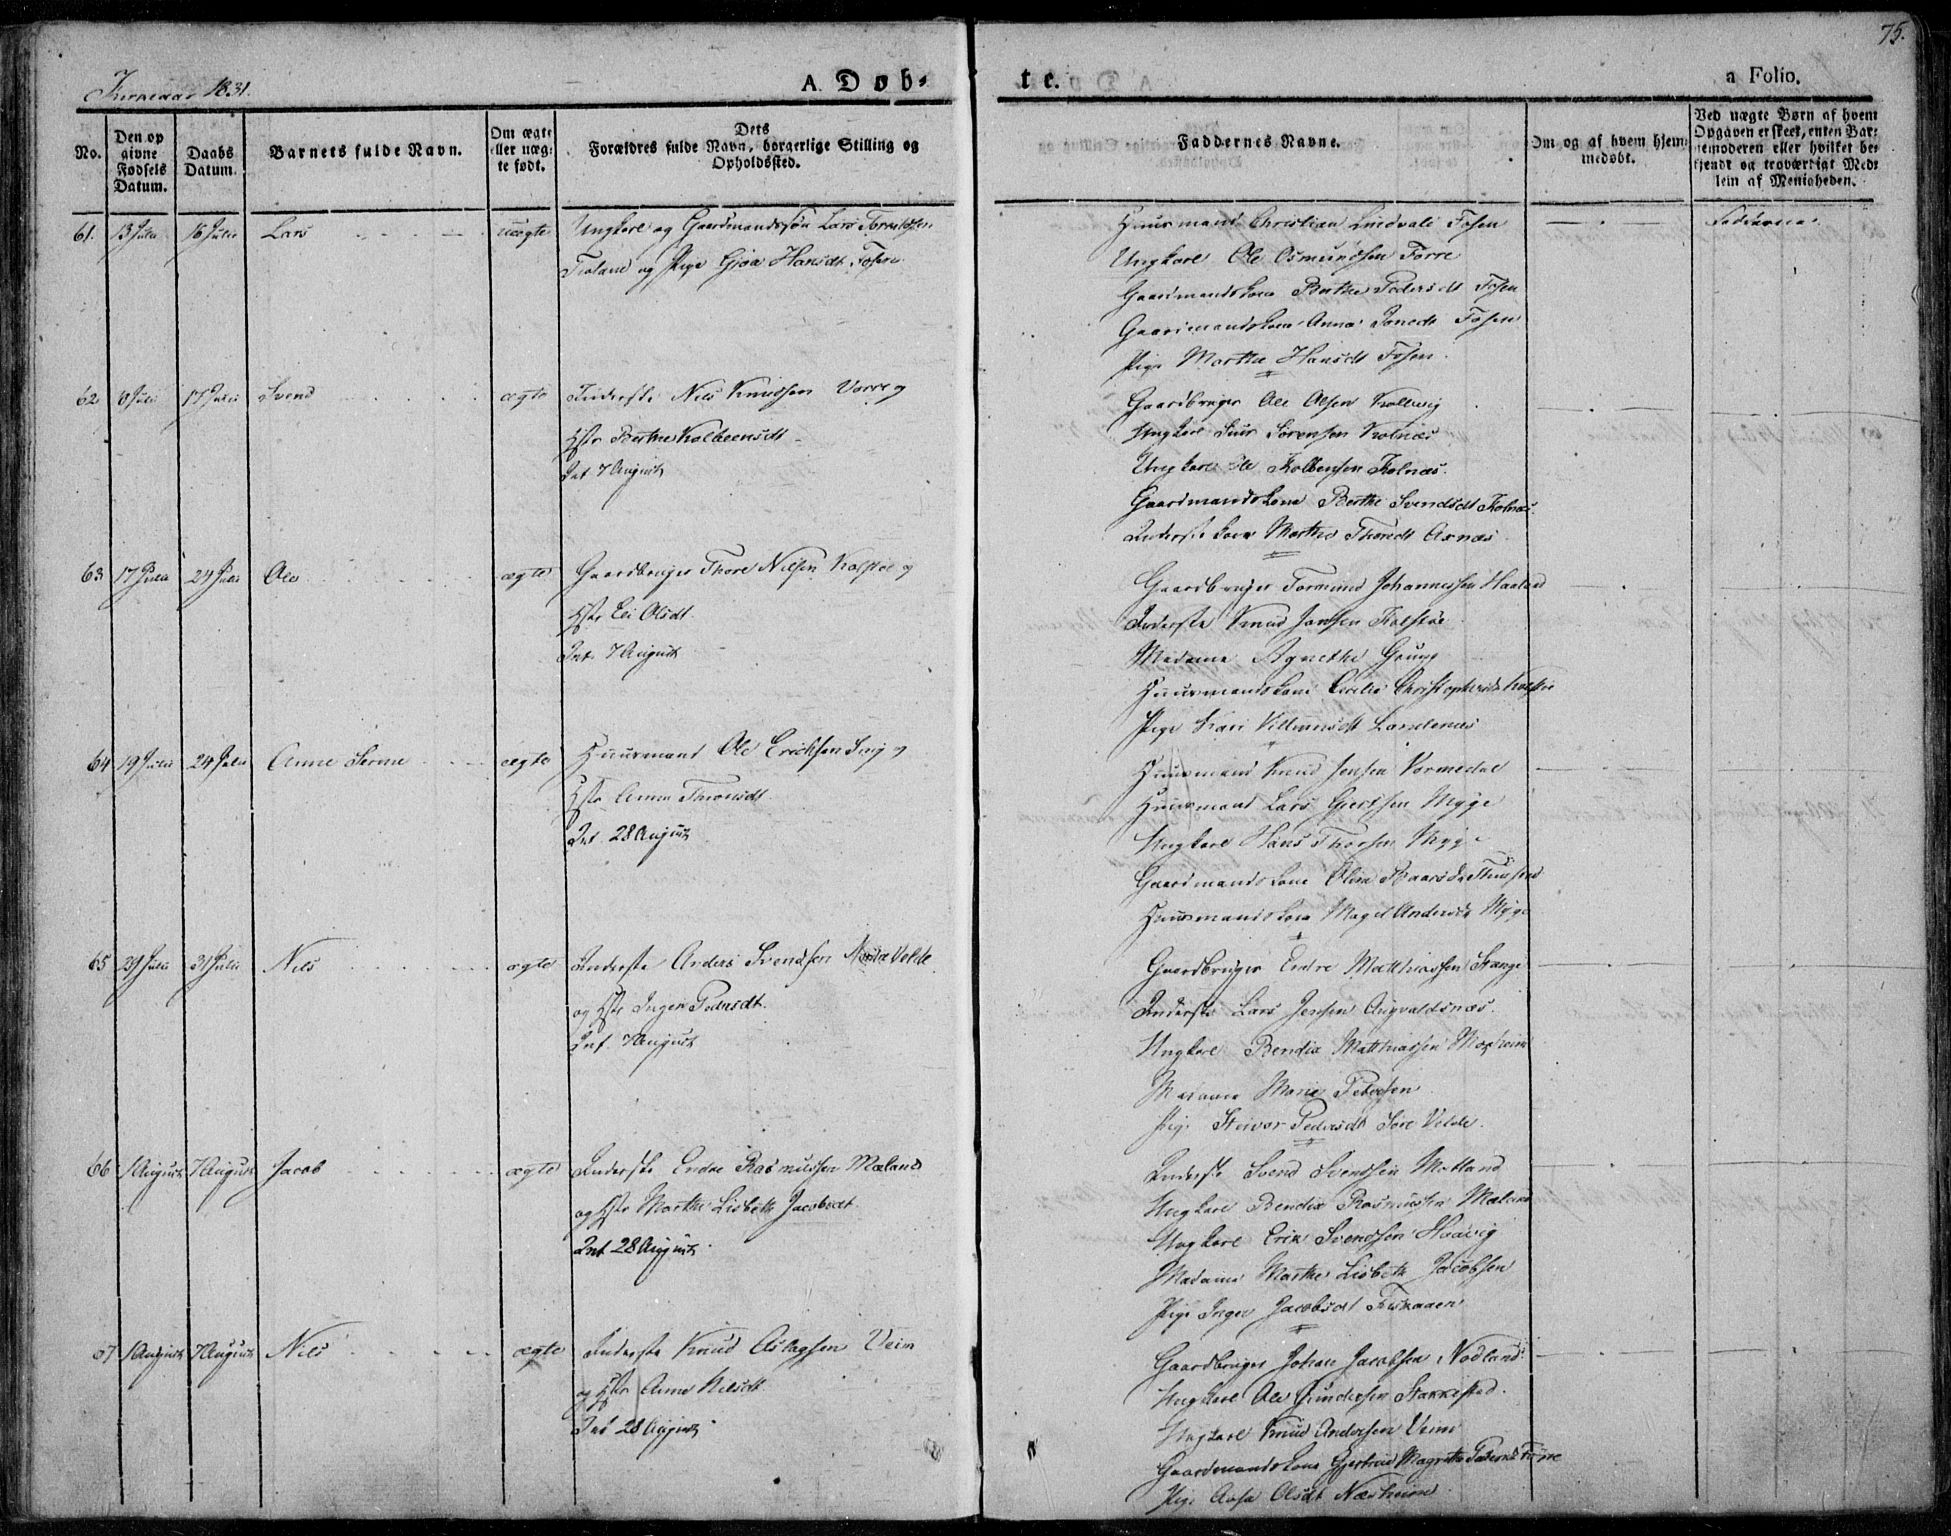 75.
Kirkeaar 1831.
A. Døb-
te.
a Folio.
No.
Den op
givne
Fødsels
Datum.
Daabs
Datum.
Barnets fulde Navn.
Om ægte
eller uæg-
te født.
Dets
Forældres fulde Navn, borgerlige Stilling og
Opholdssted.
Faddernes Navne.
Om og af hvem hjem-
medøbt.
Ved uægte Børn af hvem
Opgaven er skeet, enten Bar-
nemoderen eller hvilket be-
kjendt og troværdigt Med-
lem af Menigheden.
61. 13 Julii 16 Julii Lars uægte Ungkarl og Gaardmandssøn Lars
og Pige Gjøa Hansdt Fosen
Huusmand Christian Lindvald Fosen
Ungkarl Ole Osmundsen Førre
Gaardmandskone Berthe Pedersdt Fosen
Gaardmandskone Anna Jonedt Fosen
Pige Martha Hansdt Fosen.
62 8 Julii 17 Julii Svend ægte Inderste Nils Knudsen Vorre og
Hstr Berthe Kolbeensdt
Int 7 August
Gaardbruger Ole Olsen Kolluvig
Ungkarl Siur Sørensen Kolnæs
Ungkarl Ole Kolbensen Kolnæs.
Gaardmandskone Berthe Svendsdt Kolnæs.
Inderstekone Marthe Thoredt Axnæs
63 17 Julii 24 Julii Ole ægte Gaardbruger Thore Nilsen Kolstøe og
Hstr Eli Olsdt.
Int. 7 August
Gaardbruger Tormund Johannessen Haaland
Inderste Knud Jansen Kolstøe
Madame Agnethe Grung
Huusmandskone Cecilie Christophersdt Kolstøe
Pige Kari Villumsdt Landenæs
64 19 Julii 24 Julii Anne Serine ægte Huusmand Ole Ericksen og
Hstr Anna Thronsdt.
Int. 28 August
Huusmand Knud Jensen Vormedal
Huusmand Lars Gjertsen Mygge
Ungkarl Hans Thorsen Mygge
Gaardmandskone
Huusmandskone Magel Andersdt Mygge
65 29 Julii 31 Julii Nils ægte Inderste Anders Svendsen Nordre Velde
og Hstr Inger Pedersdt.
Int. 7 August
Gaardbruger Endre Matthiassen Stange
Inderste Lars Jensen Augvaldsnæs.
Ungkarl Bendix Matthiassen
Madame Maria Petersen
Pige Steivor Pedersdt Søre Velde.
66 1 August 7 August Jacob ægte Inderste Endre Rasmussen Mæland
og Hstr Marthe Lisbeth Jacobsdt.
Int 28 August.
Inderste Svend Svendsen Matland
Ungkarl Bendix Rasmussen Mæland
Ungkarl Erik Svendsen Huavig
Madame Marthe Lisbeth Jacobsen
Pige Inger Jacobsdt Fiskaaen
67 1 August 7 August Nils ægte Inderste Knud Aslagsen Veim
og Hstr Anne Nilsdt
Int 28 August
Gaardbruger Johan Jacobsen Nodland.
Ungkarl Ole Gundersen Stakkestad.
Ungkarl Knud Andersen Veim
Gaardmandskone Gjertrud Magrethe Pedersdt Førre
Pige Aasa Olsdt Næsheim